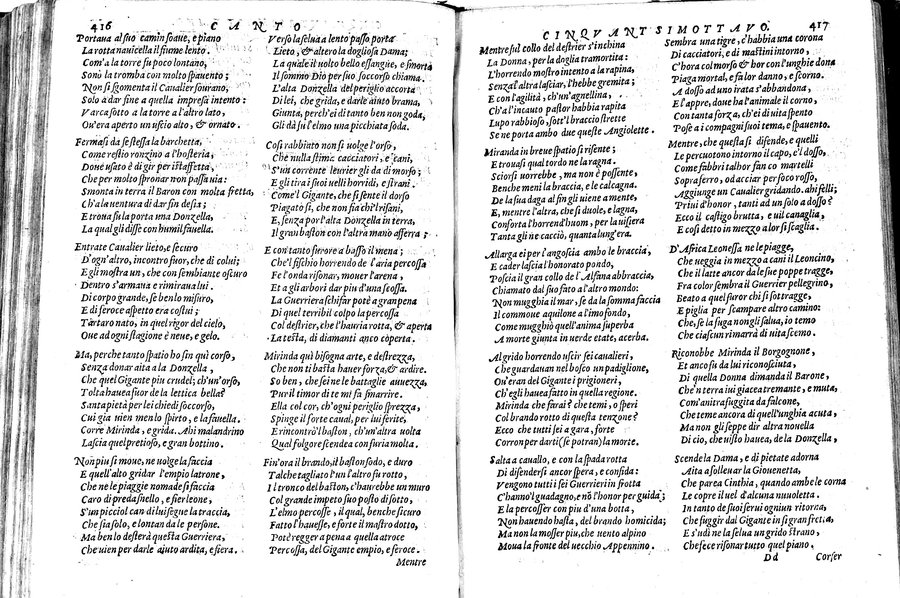 416 CANTO
Portaua al suo camin soaue, e piano
La rotta nauicella il fiume lento.
Com'a la torre fu poco lontano,
Sonò la tromba con molto spauento;
Non si sgomenta il Caualier sourano,
Solo a dar fine a quella impresa intento:
Varca sotto a la torre a l'altro lato,
Ou'era aperto un uscio alto, & ornato.
Fermasi da se stessa la barchetta,
Come restio ronzino a l'hosteria,
Done usato è di gir per istaffetta,
Che per molto spronar non passa uia:
Smonta in terra il Baron con molta fretta,
Ch'a la uentura di dar fin desia;
E troua su la porta una Donzella,
La qual gli disse con humil fauella.
Entrate Caualier lieto, e securo
D'ogn'altro, incontro fuor, che di colui;
Egli mostra un, che con sembiante oscuro
Dentro s'armaua e rimiraua lui.
Di corpo grande, se ben lo misuro,
E di feroce aspetto era costui;
Tartaro nato, in quel rigor del cielo,
Oue ad ogni stagione è neue, e gelo.
Ma, perche tanto spatio ho sin quì corso,
Senza donar aita a la Donzella,
Che quel Gigante piu crudel; ch'un'orso,
Tolta hauea fuor de la lettica bella?
Santa pietà per lei chiedi soccorso,
Cui gia uien men lo spirto, e la fauella.
Corre Mirinda, e grida. Ahi malandrino
Lascia quel pretioso, e gran bottino.
Non piu si moue, ne uolge la faccia
E quell'altro gridar l'empio latrone,
Che ne le piaggie nomade si faccia
Caro di preda snello, e fier leone,
S'un picciol can di lui segue la traccia,
Che sia solo, e lontan da le persone.
Ma ben lo desterà questa Guerriera,
Che uien per darle aiuto ardita, e fiera.
Verso la selua a lento passo porta
Lieto, & altero la dogliosa Dama;
La quale il uolto bello essangue, e smorta
Il sommo Dio per suo soccorso chiama.
L'alta Donzella del periglio accorta
Di lei, che grida, e darle aiuto brama,
Giunta, perch'ei di tanto ben non goda,
Gli dà su l'elmo una picchiata soda.
Così rabbiato non si uolge l'orso,
Che nulla stima cacciatori, e cani,
S'un corrente leurier gli da di morso;
E gli tira i suoi uelli horridi, e strani.
Come'l Gigante, che si sente il dorso
Piagato sì, che non fia chi'l risani,
E, senza por l'alta Donzella in terra,
Il gran baston con l'altra mano afferra;
E con tanto furore a basso il mena;
Che'l fischio horrendo de l'aria percossa
Fe l'onda risonar, mouer l'arena,
Et a gli arbori dar piu d'una scossa.
La Guerriera schifar potè a gran pena
Di quel terribil colpo la percossa
Col destrier, che l'hauria rotta, & aperta
La testa, di diamanti anco coperta.
Mirinda quì bisogna arte, e destrezza,
Che non ti basta hauer forza, & ardire.
So ben, che sei ne le battaglie auuezza,
Pur il timor di te mi fa smarrire.
Ella col cor, ch'ogni periglio sprezza,
Spinge il forte caual, per lui ferire,
E rincontrò'l baston, ch'un'altra uolta
Qual folgore scendea con furia molta.
Fin'ora il brando, il baston sodo, e duro
Tal che tagliato l'un l'altro fu rotto,
Il tronco del baston, c'haurebbe un muro
Col grande impeto suo posto di sotto,
L'elmo percosse, il qual, benche sicuro
Fatto l'hauesse, e forte il mastro dotto,
Potè regger a pena a quella atroce
Percossa, del Gigante empio, e feroce.
Mentre
CINQVANTESIMOTTAVO. 417
Mentre sul collo del destrier s'inchina
La Donna, per la doglia tramortita:
L'horrendo mostro intento a la rapina,
Senza l'altra lasciar, l'hebbe gremita;
E con l'agilità, ch'un'agnellina,
Ch'a l'incauto pastor habbia rapita
Lupo rabbioso, sott'l braccio strette
Se ne porta ambo due queste Angiolette.
Miranda in breue spatio si risente;
E trouasi qual tordo ne la ragna.
Sciorsi uorrebbe, ma non è possente,
Benche meni la braccia, e le calcagna.
De la sua daga al fin gli uiene a mente,
E, mentre l'altra, che si duole, e lagna,
Conforta l'horrend'huom, per la uisiera
Tanta gli ne cacciò, quanta lung'era.
Allarga ei per l'angoscia ambo le braccia,
E cader lascia l'honorato pondo,
Poscia il gran collo de l'Alfana abbraccia,
Chiamato dal suo fato a l'altro mondo:
Non mugghia il mar, se da la somma faccia
Il commoue aquilone a l'imo fondo,
Come mugghiò quell'anima superba
A morte giunta in uerde etate, acerba.
Al grido horrendo uscir sei caualieri,
Che guardauan nel bosco un padiglione,
Ou'eran del Gigante i prigioneri,
Ch'egli hauea fatto in quella regione.
Mirinda che farai? che temi, o speri
Col brando rotto di questa tenzone?
Ecco che tutti sei a gara, forte
Corron per darti (se potran) la morte.
Salta a cauallo, e con la spada rotta
Di difendersi ancor spera, e confida:
Vengono tutti i sei Guerrieri in frotta
C'hanno'l guadagno, e nõ l'honor per guida;
E la percosser con piu d'una botta,
Non hauendo hasta, del brando homicida;
Ma non la mosser piu, che uento alpino
Moua la fronte del uecchio Appennino.
Sembra una tigre, c'habbia una corona
Di cacciatori, e di mastini intorno,
C'hora col morso & hor con l'unghie dona
Piaga mortal, e fa lor danno, e scorno.
A dosso ad uno irata s'abbandona,
E l'apre, doue ha l'animale il corno,
Con tanta forza, ch'ei di uita spento
Pose a i compagni suoi tema, e spauento.
Mentre, che questa si difende, e quelli
Le percuotono intorno il capo, e'l dosso,
Come fabbri talhor fan co martelli
Sopra ferro, od acciar per foco rosso,
Aggiunge un Caualier gridando. ahi felli;
Priui d'honor, tanti ad un solo a dosso?
Ecco il castigo brutta, e uil canaglia,
E così detto in mezzo a lor si scaglia.
D'Africa Leonessa ne le piagge,
Che ueggia in mezzo a cani il Leoncino,
Che il latte ancor da le sue poppe tragge,
Fra color sembra il Guerrier pellegrino,
Beato a quel furor chi si sottragge,
E piglia per scampare altro camino:
Che, se la fuga non gli salua, io temo
Che ciascun rimarrà di uita scemo.
Riconobbe Mirinda il Borgognone,
Et anco fu da lui riconosciuta,
Di quella Donna dimanda il Barone,
Che'n terra iui giacea tremante, e muta,
Com'anitra fuggita da falcone,
Che teme ancora di quell'unghia acuta,
Ma non gli seppe dir altra nouella
Di cio, che uisto hauea, de la Donzella,
Scende la Dama, e di pietate adorna
Aita a solleuar la Giouenetta,
Che parea Cinthia, quando ambe le corna
Le copre il uel d'alcuna nuuoletta.
In tanto de suoi serui ogniun ritorna,
Che fuggir dal Gigante in si gran fretta,
E s'udì ne la selua un grido strano,
Che fece risonar tutto quel piano.
Dd Corser